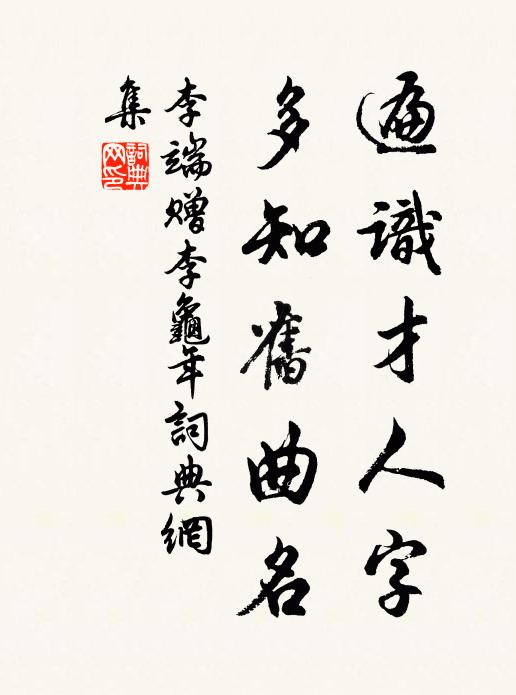 遍識才人字
多知舊曲名
李端贈李龜年詞典網
集
詞典
网印